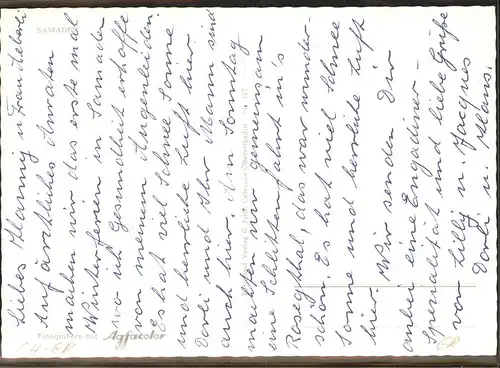 Liebes Hanny u Frau Aeberli
Auf ärztliches Anraten
machen wir das erste mal
Winterferien in Samaden
wo ich Gesundheit erhoffe
von meinem Augenleiden.
Es hat viel Schnee Sonne
und herrliche Luft hier
Dorli und Ihr Mann sind
auch hier. Am Sonntag
machten wir gemeinsam
eine Schlittenfahrt in's
Rosegthal, das war wunder-
schön. Es hat viel Schnee
Sonne und herrliche Luft
hier. Wir senden Dir
anbei eine Engadiner-
Spezialität und liebe Grüsse
von Lilly u. Jacques
Dorli u. Hans.
SAMADEN
Fotografiere mit Agfacolor
CH-GR
GR